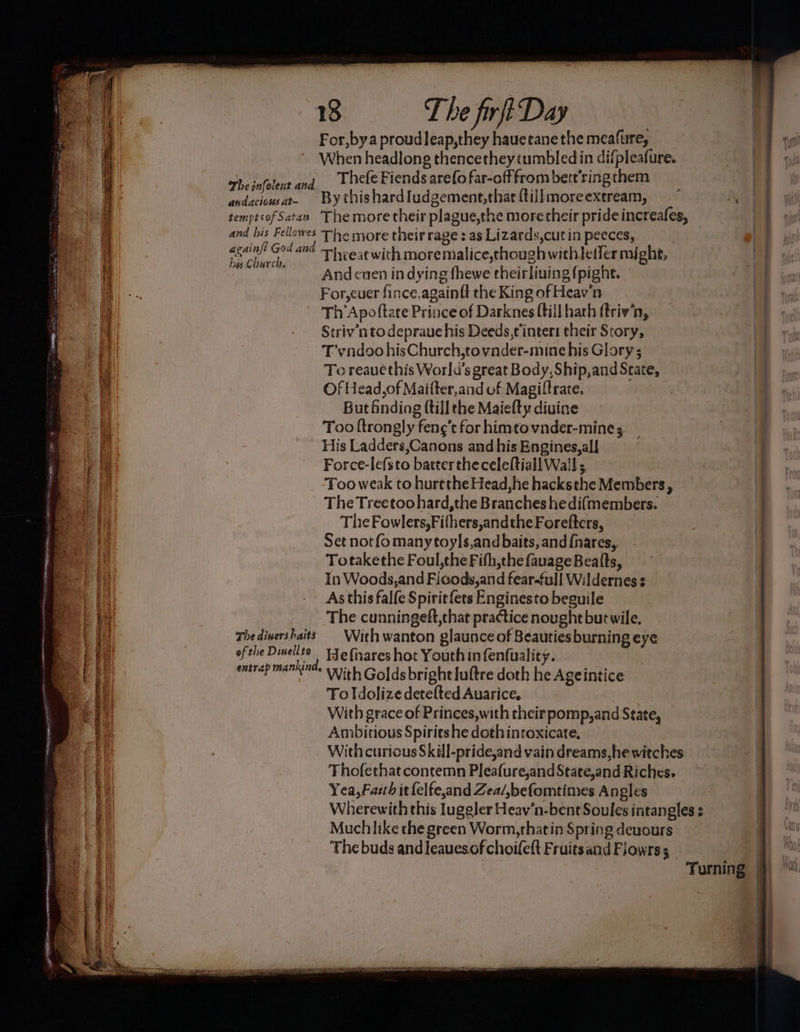 18 The firſt Day
For, by a proud leap, they haue tane the meaſure,
When headlong thence they tumbled in diſpleaſure.
Theſe Fiends are ſo far-off from bett'ring them
By this hard Iudgement, that ſtill more extream,
The more their plague, the more their pride increaſes,
The more their rage: as Lizards, cut in peeces,
Threat with more malice, though with leſſer might,
And euen in dying ſhewe their liuing ſpight.
For, euer ſince, againſt the King of Heav'n
Th'Apoſtate Prince of Darknes ſtill hath ſtriv'n,
Striv'n to depraue his Deeds, t'interr their Story,
T'vndoo his Church, to vnder-mine his Glory;
To reaue this World's great Body, Ship, and State,
Of Head, of Maiſter, and of Magiſtrate.
But finding ſtill the Maieſty diuine
Too ſtrongly fenç't for him to vnder-mine;
His Ladders, Canons and his Engines, all
Force-leſs to batter the celeſtiall Wall;
Too weak to hurt the Head, he hacks the Members,
The Tree too hard, the Branches he diſmembers.
The Fowlers, Fiſhers, and the Foreſters,
Set not ſo many toyls, and baits, and ſnares,
To take the Foul, the Fiſh, the ſauage Beaſts,
In Woods, and Floods, and fear-full Wildernes:
As this falſe Spirit ſets Engines to beguile
The cunningeſt, that practice nought but wile.
With wanton glaunce of Beauties burning eye
He ſnares hot Youth in ſenſuality.
With Golds bright luſtre doth he Age intice
To Idolize deteſted Auarice.
With grace of Princes, with their pomp, and State,
Ambitious Spirits he doth intoxicate.
With curious Skill-pride, and vain dreams, he witches
Thoſe that contemn Pleaſure, and State, and Riches.
Yea, Faith it ſelfe, and Zeal, be ſomtimes Angles
Wherewith this Iuggler Heav'n-bent Soules intangles:
Much like the green Worm, that in Spring deuours
The buds and leaues of choiſeſt Fruits and Flowrs;
Turning
The inſolent and
audacious at-
tempts of Satan
and his Fellowes
againſt God and
his Church.
The diuers baits
of the Diuell to
entrap mankind.